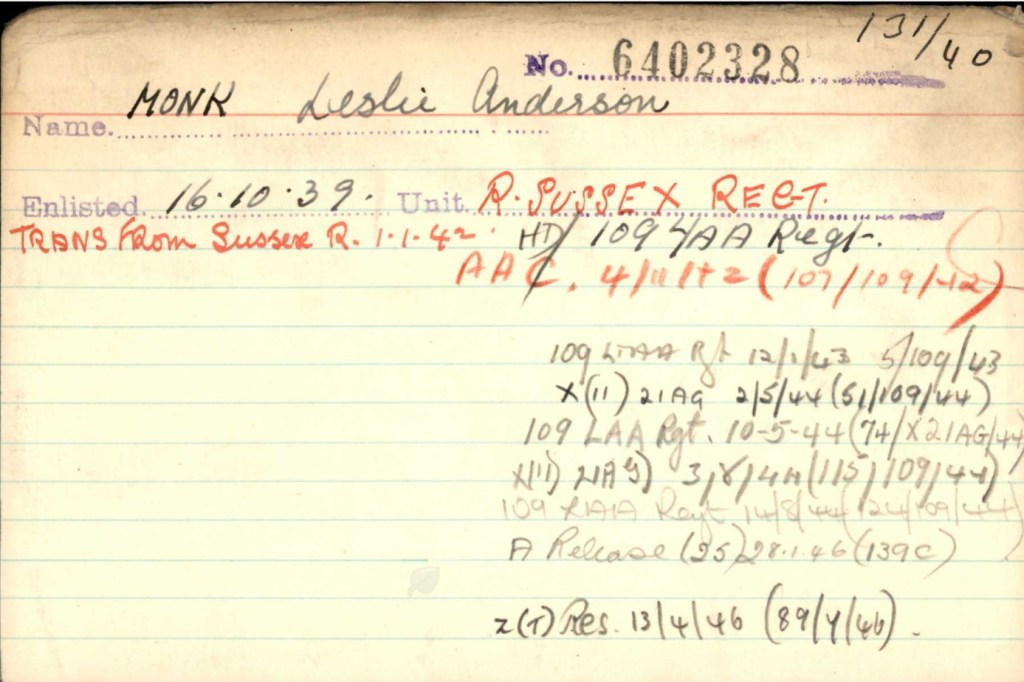 131/40
No. 6402328
Name. MONK Leslie Anderson
Enlisted. 16.10.39. Unit. R. SUSSEX REGT.
TRANS From Sussex R. 1.1.42. HD/ 109 LAA Regt.
AAC. 4/11/42 (107/109/42)
109 LTAA Rgt 12/1/43 5/109/43
X(11) 21AG 2/5/44 (51/109/44)
109 LAA Rgt. 10-5-44 (74/X21AG/44
X(11) 21AG) 3/8/44 (115/109/44)
109 LAA Regt 14/8/44 (124/109/44)
A Release (25) 28.1.46 (139C)
Z(T) Res. 13/4/46 (89/4/46).